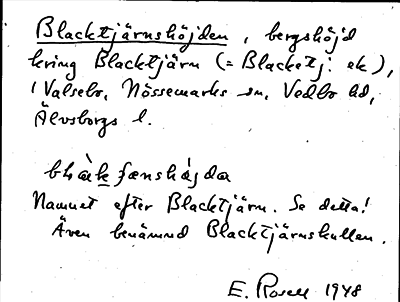 Blacktjärnshöjden, bergshöjd
kring Blacktjärn (= Blacketj: ek),
i Valsebo, Nössemarks sn, Vedbo hd,
Älvsborgs l.
blàkʃænshájda
Namnet efter Blacktjärn. Se detta!
Även benämnd Blacktjärnskullen.
E. Rosell 1948